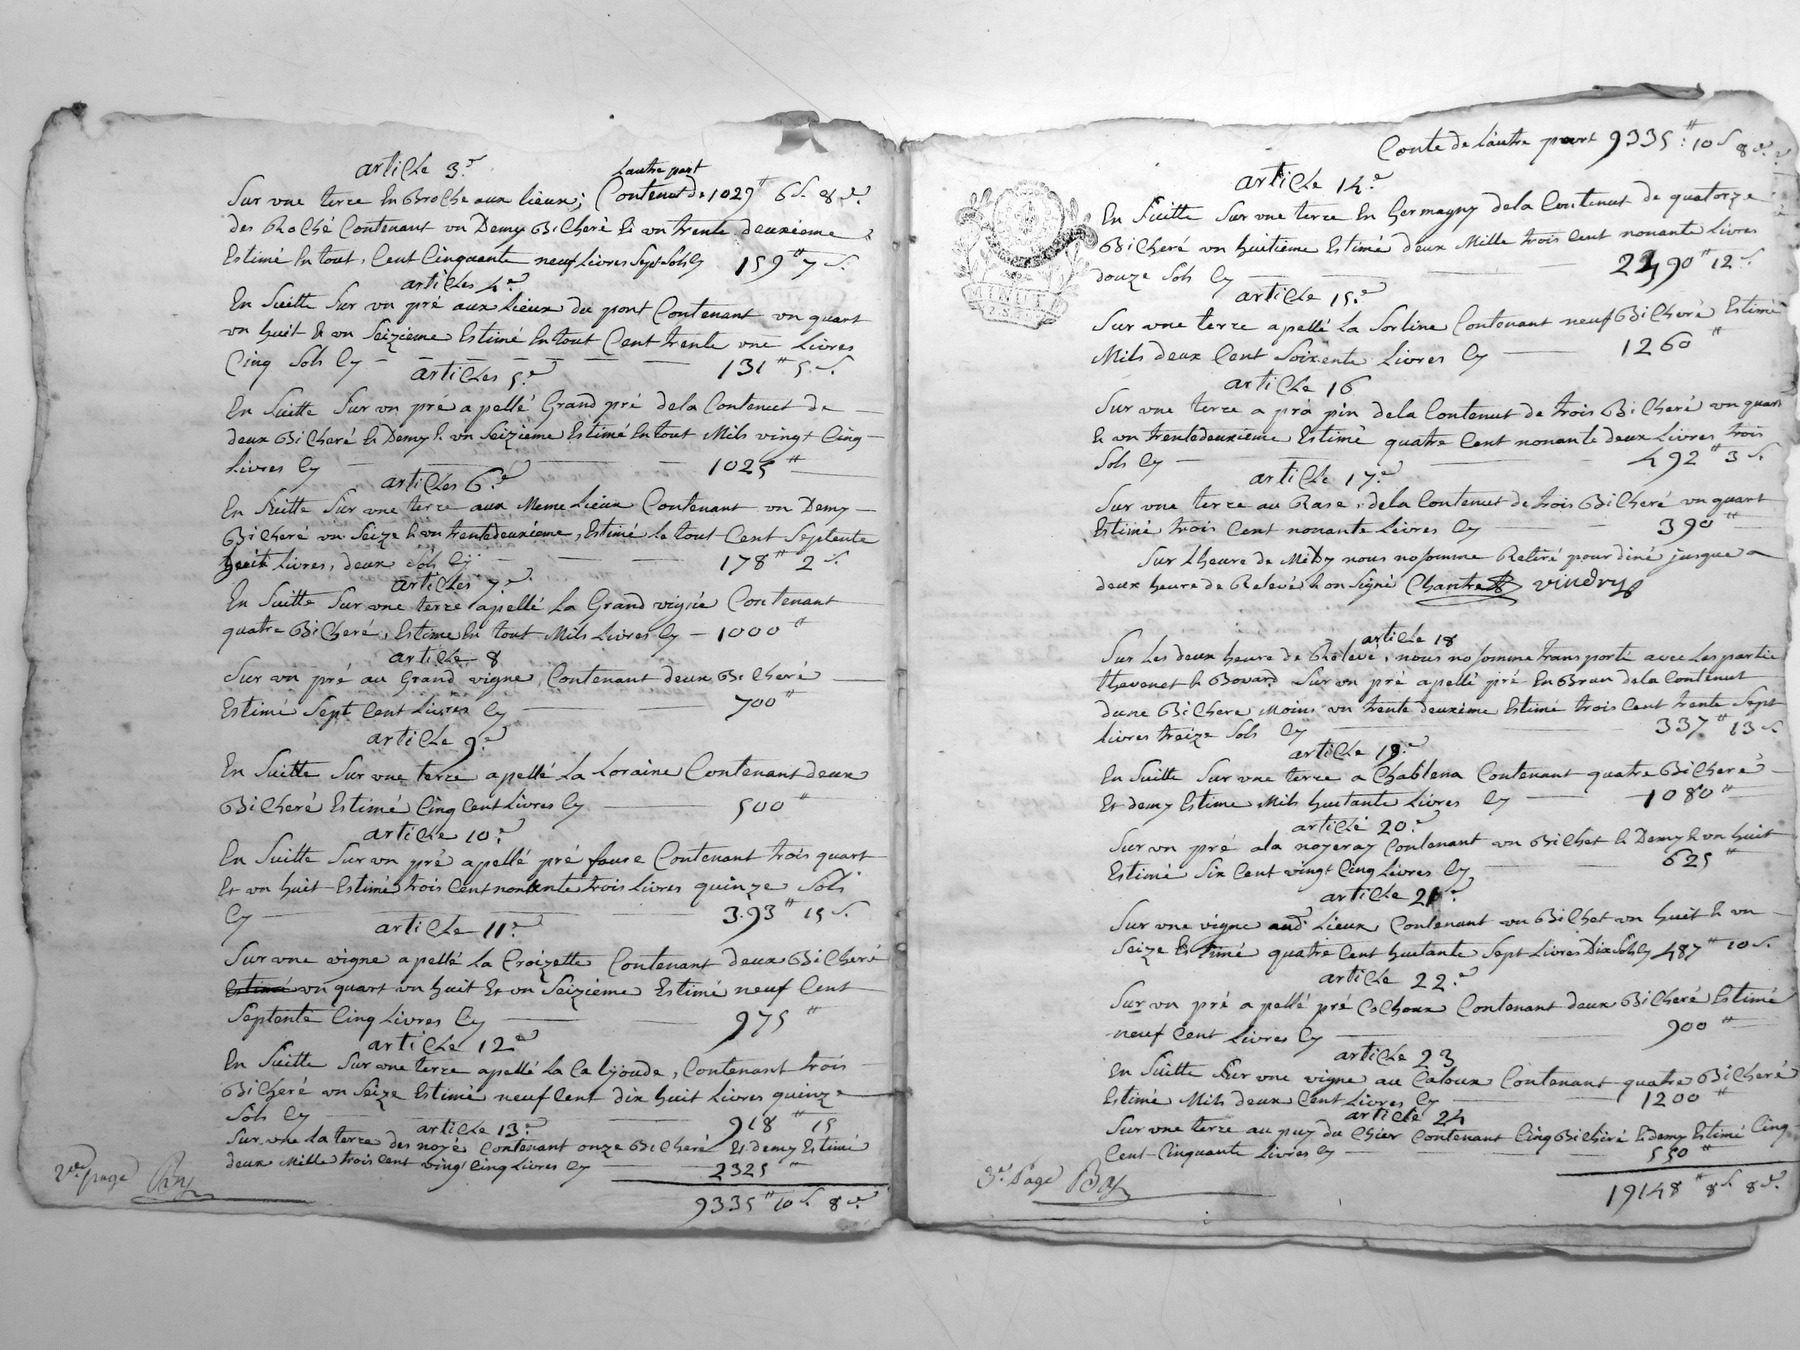 article 3.e
Lautre part
Sur une terre En Broche aux lieux; Contenut de 1029# 6 S. 8 d.
des Roché Contenant un Demy Bicheré & un trente deuxieme
Estimé En tout, Cent Cinquante neuf Livres Sept Sols Cy 159# 7 S.
articles 4.e
En Suitte Sur un pré aux Lieux du pont Contenant un quart
un huit & un Seizieme Estimé En tout Cent trente une Livres
Cinq Sols Cy 131# 5 S.
articles 5.e
En Suitte Sur un pré apellé Grand pré dela Contenut de
deux Bicheré & Demy & un Seizieme Estimé En tout Mils vingt Cinq
Livres Cy 1025#
articles 6.e
En Suitte Sur une terre aux Meme Lieux Contenant un Demy
Bicheré un Seize & un trentedeuxieme, Estimé le tout Cent Septente
huit Livres, deux Sols Cy 178# 2 S.
articles 7.e
En Suitte Sur une terre apellé La Grand vigne Contenant
quatre Bicheré, Estime En tout Mils Livres Cy 1000#
article 8
Sur un pré au Grand vigne, Contenant deux Bicheré
Estimé Sept Cent Livres Cy 700#
article 9.e
En Suitte Sur une terre apellé La Loraine Contenant deux
Bicheré Estimé Cinq Cent Livres Cy 500#
article 10.e
En Suitte Sur un pré apellé pré faure Contenant trois quart
Et un huit Estimé trois Cent nonante trois Livres quinze Sols
Cy 393# 15 S.
article 11.e
Sur une vigne apellé La Croizette Contenant deux Bicheré
Estimé un quart un huit Et un Seizieme Estimé neuf Cent
Septente Cinq Livres Cy 975#
article 12.e
En Suitte Sur une terre apellé La Caljoude, Contenant trois
Bicheré un Seize Estimé neuf Cent dix huit Livres quinze
Sols Cy 918# 15
article 13.e
Sur une La terre des noyé Contenant onze Bicheré Et demy Estimé
deux Mille trois Cent vingt Cinq Livres Cy 2325#
2.me page
9335# 10 S. 8 d.
Conte de Lautre part 9335# 10 S 8 d.
article 14.e
En Suitte Sur une terre En Germagny dela Contenut de quatorze
Bicheré un huitieme Estimé deux Mille trois Cent nonante Livres
douze Sols Cy 2390# 12 S.
article 15.e
Sur une terre apellé La Sorline Contenant neuf Bicheré Estimé
Mils deux Cent Soixente Livres Cy 1260#
article 16
Sur une terre a pra pin dela Contenut de trois Bicheré un quart
& un trentedeuxieme Estimé quatre Cent nonante deux Livres trois
Sols Cy 492# 3 S.
article 17.e
Sur une terre au Rase, dela Contenut de trois Bicheré un quart
Estimé trois Cent nonante Livres Cy 390#
Sur Lheure de Midy nous no Somme Retiré pour diné jusque a
deux heure de Relevé & on Signé Chantre vindry
article 18
Sur Les deux heure de Relevé, nous no Somme transporté avec Les partie
thevenet & Bovard Sur un pré apellé pré En Bran dela Contenut
dune Bichere Moins un trente deuxieme Estimé trois Cent trente Sept
livres treize Sols Cy 337# 13 S.
article 19.e
En Suitte Sur une terre a Chablena Contenant quatre Bicheré
Et demy Estime Mils huitante Livres Cy 1080#
article 20.e
Sur un pré ala noyeray Contenant un Bichet & Demy & un huit
Estimé Six Cent vingt Cinq Livres Cy 625#
article 21.e
Sur une vigne aud. Lieux Contenant un Bichet un huit & un
Seize Estimé quatre Cent huitante Sept Livres Dix Sols Cy 487# 10 S.
article 22.e
Sur un pré apellé pré Cochoux Contenant deux Bicheré Estimé
neuf Cent Livres Cy 900#
article 23
En Suitte Sur une vigne au Caloux Contenant quatre Bicheré
Estimé Mils deux Cent Livres Cy 1200#
article 24
Sur une terre au puy du Chier Contenant Cinq Bicheré & demy Estimé Cinq
Cent Cinquante Livres Cy 550#
3.e Page
19148# 8 S. 8 d.